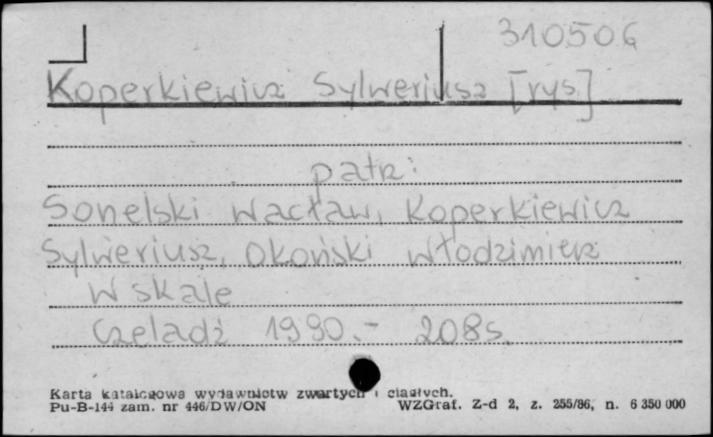 310506
Koperkiewicz Sylweriusz [rys]
patrz:
Sonelski Wacław, Koperkiewicz
Sylweriusz, Okoński Włodzimierz
W skale
Czeladź 1990.- 208 s.
Karta katalogowa wydawnictw zwartych i ciągłych.
Pu-B-144 zam. nr 446/DW/ON WZGraf. Z-d 2, z. 255/86, n. 6 350 000